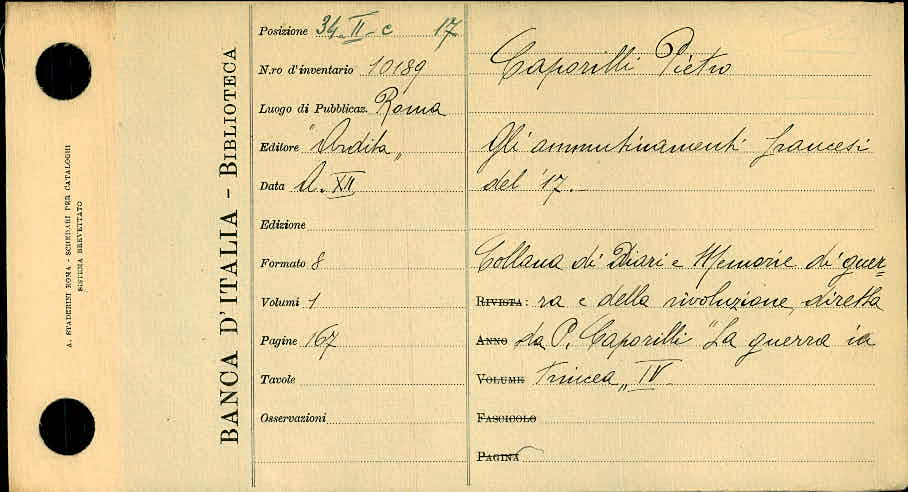 A. STADERINI ROMA - SCHEDARI PER CATALOGHI
SISTEMA BREVETTATO
BANCA D'ITALIA - BIBLIOTECA
Posizione 34-II-c 17
N.ro d'inventario 10189
Luogo di Pubblicaz. Roma
Editore "Ardita"
Data A. XII
Edizione
Formato 8
Volumi 1
Pagine 167
Tavole
Osservazioni
Caporilli Pietro
Gli ammutinamenti francesi
del '17.
Collana di Diari e Memorie di guer=
RIVISTA: ra e della rivoluzione, diretta
ANNO da P. Caporilli "La guerra in
VOLUME trincea" IV
FASCICOLO
PAGINA